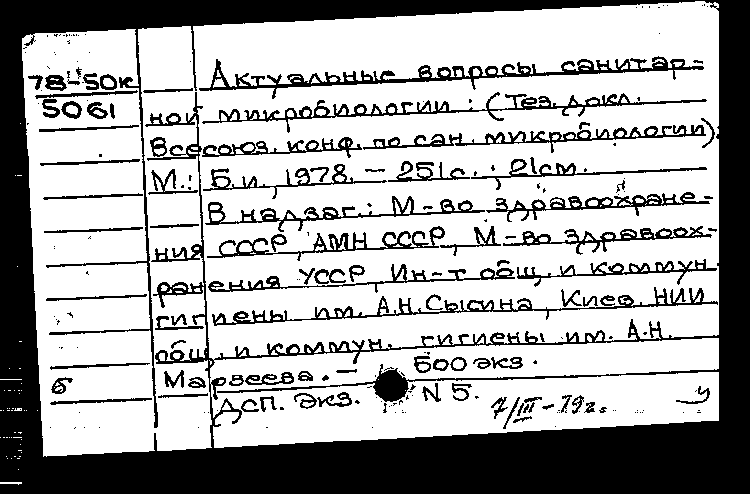 78-50к
5061
Актуальные вопросы санитар=
ной микробиологии: (Тез. докл.
Всесоюз. конф. по сан. микробиологии).
М.: Б.и., 1978. - 251 с.; 21 см.
В надзаг.: М-во здравоохране-
ния СССР, АМН СССР, М-во здравоох-
ранения УССР, Ин-т общ. и коммун.
гигиены им. А.Н. Сысина, Киев. НИИ
общ. и коммун. гигиены им. А.Н.
б Марзеева. - 500 экз.
ДСП. Экз. N 5.
7/III-79г.